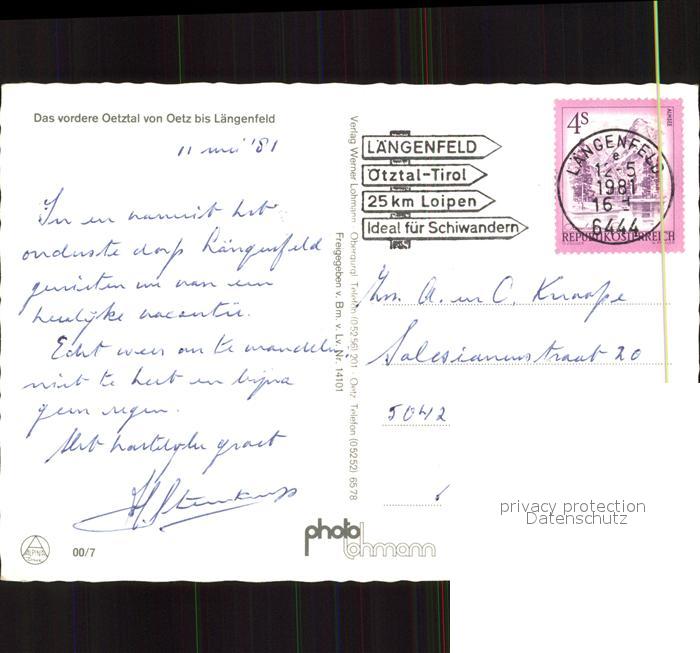 Das vordere Oetztal von Oetz bis Längenfeld
11 mei '81
In en vanuit het
oudste dorp Längenfeld
genieten we van een
heerlijke vacantie.
Echt weer om te wandelen,
niet te heet en bijna
geen regen.
Met hartelijke groet
H. Steenkamp
ALPINA
00/7
Verlag Werner Lohmann Obergurgl Telefon (05256) 201 · Oetz Telefon (05252) 6578
Freigegeben v. Bm. v. Lv. Nr. 14101
photo
lohmann
LÄNGENFELD
Ötztal-Tirol
25 km Loipen
Ideal für Schiwandern
4S
ALMSEE
LÄNGENFELD
e
12-5
1981
16-
6444
REPUBLIK ÖSTERREICH
Fam. A. en C. Knaape
Salesianenstraat 20
5042
privacy protection
Datenschutz